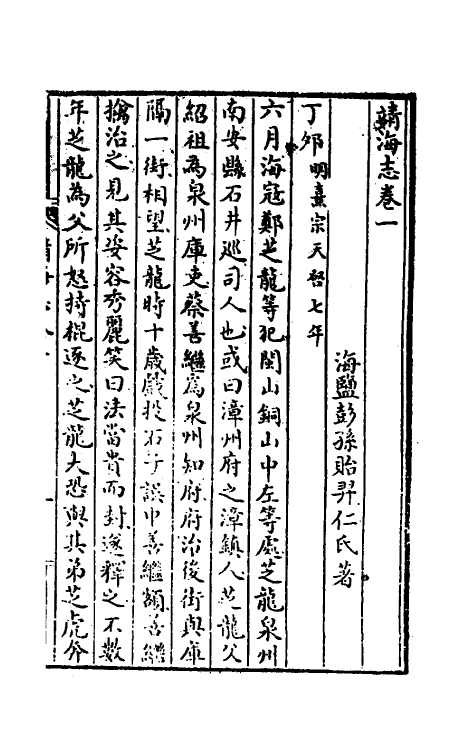 靖海志卷一
海鹽彭孫貽羿仁氏著
丁夘明熹宗天啓七年
六月海寇鄭芝龍等犯閩山銅山中左等處芝龍泉州
南安縣石井巡司人也或曰漳州府之漳鎮人芝龍父
紹祖為泉州庫吏蔡善繼為泉州知府府治後街與庫
隔一街相望芝龍時十歲戲投石子誤中善繼額善繼
擒治之見其姿容秀麗笑曰法當貴而封遂釋之不數
年芝龍為父所怒持棍逐之芝龍大恐與其弟芝虎奔